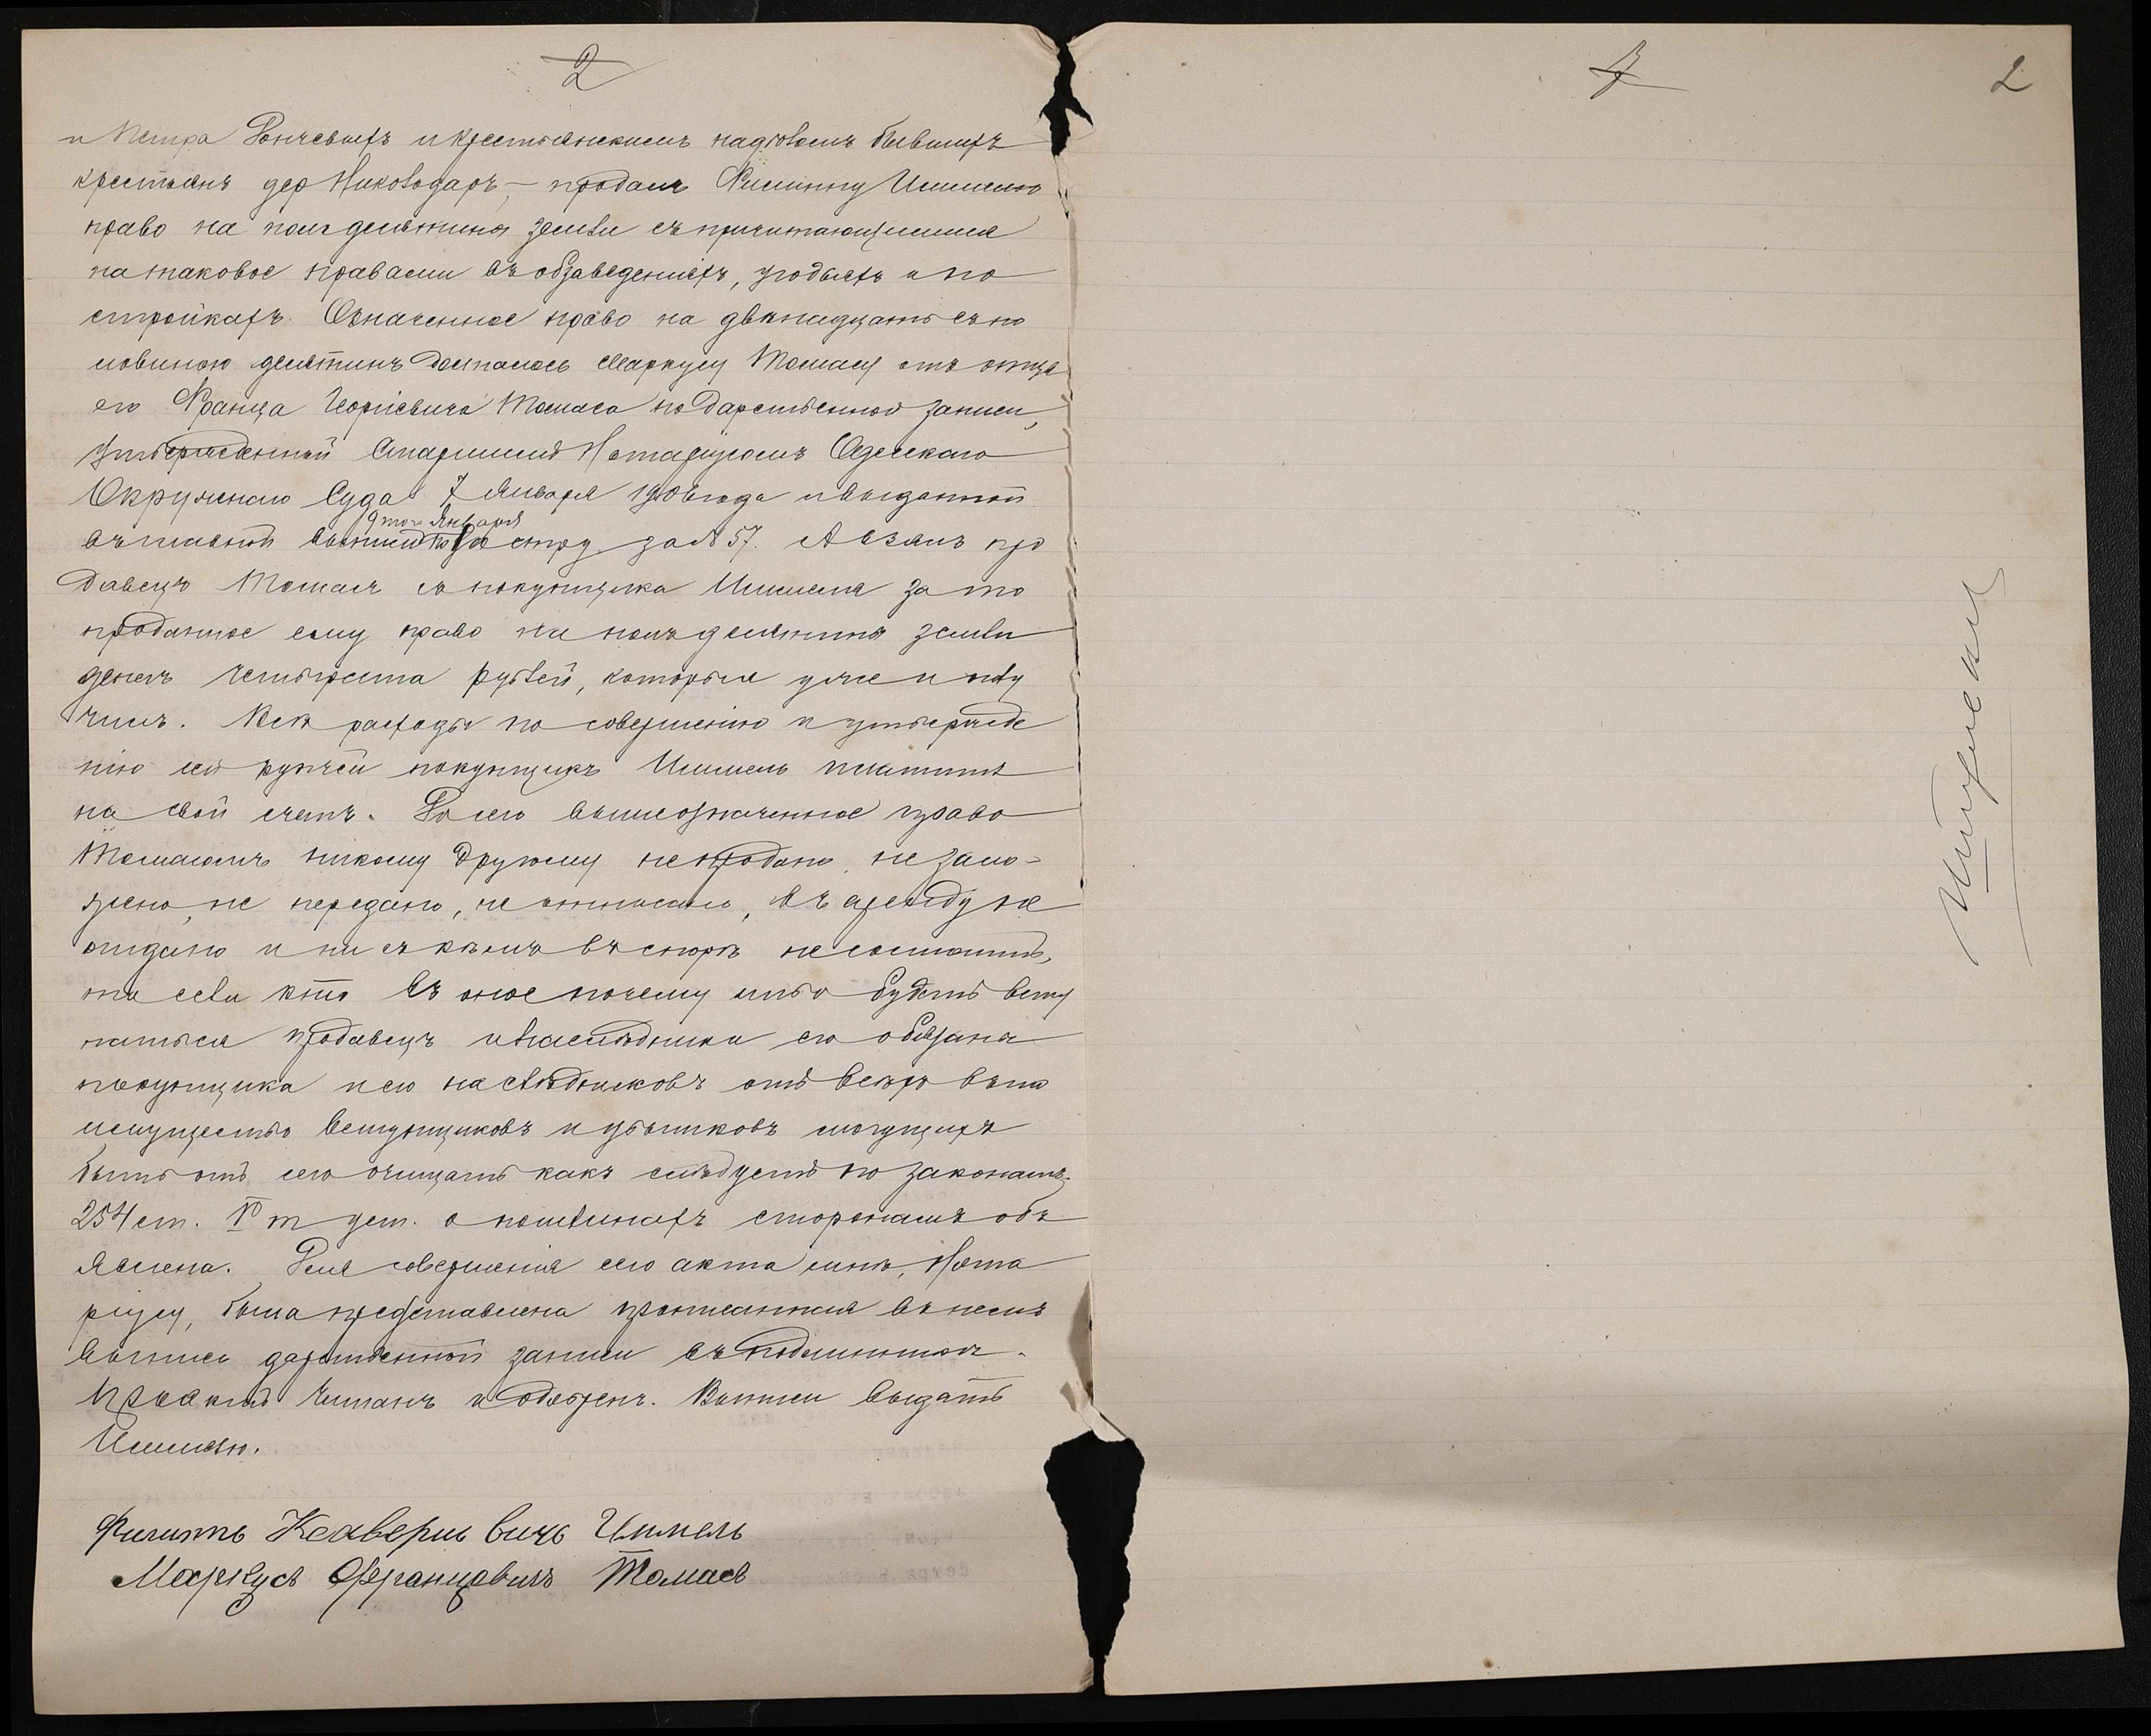 2
и Петра Бончевыхъ и крестьянскимъ надѣломъ бывшихъ
крестьянъ дер Николодаръ, — продалъ Филиппу Иммелю
право на полъ десятины земли съ причитающимися
на таковое правами въ обзаведеніяхъ, угодьяхъ и по
стройкахъ. Означенное право на двѣнадцать съ по
ловиною десятинъ досталось Маркусу Томасу отъ отца
его Франца Георгіевича Томаса по дарственной записи,
утвержденной Старшимъ Нотаріусомъ Одесскаго
Окружнаго Суда 7 Января года и выданной
9 того Января
въ главной выписи по стру за № 57. А взялъ про
давецъ Томасъ съ покупщика Иммеля за то
проданное ему право на полъ десятины земли
денегъ четыреста рублей, которые уже и полу
чилъ. Всѣ расходы по совершенію и утвержде
нію сей купчей покупщикъ Иммель платитъ
на свой счетъ. До сего вышеозначенное право
Томасомъ никому другому не продано, не зало-
жено, не передано, не отписано, въ аренду не
отдано и ни съ кѣмъ въ спорѣ не состоитъ,
если кто въ оное почему либо будетъ всту
паться продавецъ и наслѣдники его обязаны
покупщика и его наслѣдниковъ отъ всѣхъ въ то
имущество вступщиковъ и убытковъ могущихъ
быть отъ сего очищать какъ слѣдуетъ по законамъ.
254 ст. V т уст. о пошлинахъ сторонамъ объ
явлена. Для совершенія сего акта мнѣ, Нота
ріусу, была представлена прописанная въ немъ
выпись дарственной записи съ подлиннымъ.
Проактъ читанъ и одобренъ. Выпись выдать
Иммелю.
Филиппъ Ксаверіевичъ Иммель
Маркусъ Францовичъ Томасъ
2